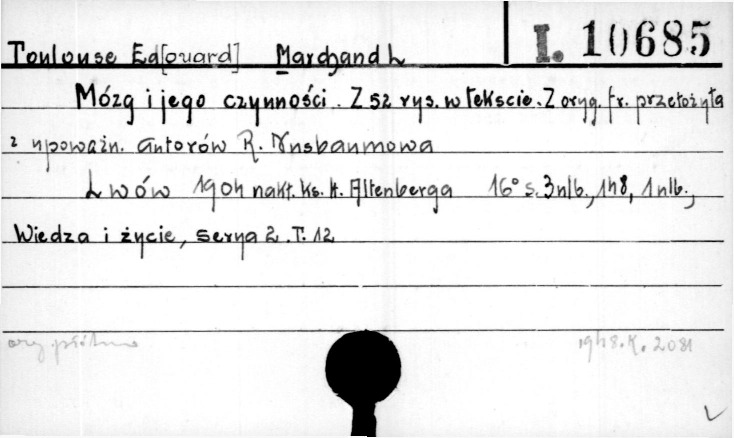 I. 10685
Toulouse Ed[ouard] Marchand L
Mózg i jego czynności. Z 52 rys. w tekście. Z oryg. fr. przełożyła
z upoważn. autorów R. Nusbaumowa
Lwów 1904 nakł. ks. H. Altenberga 16° s. 3 nlb., 148, 1 nlb.,
Wiedza i życie, serya 2. T. 12
opr. płótno 1948.K. 2081